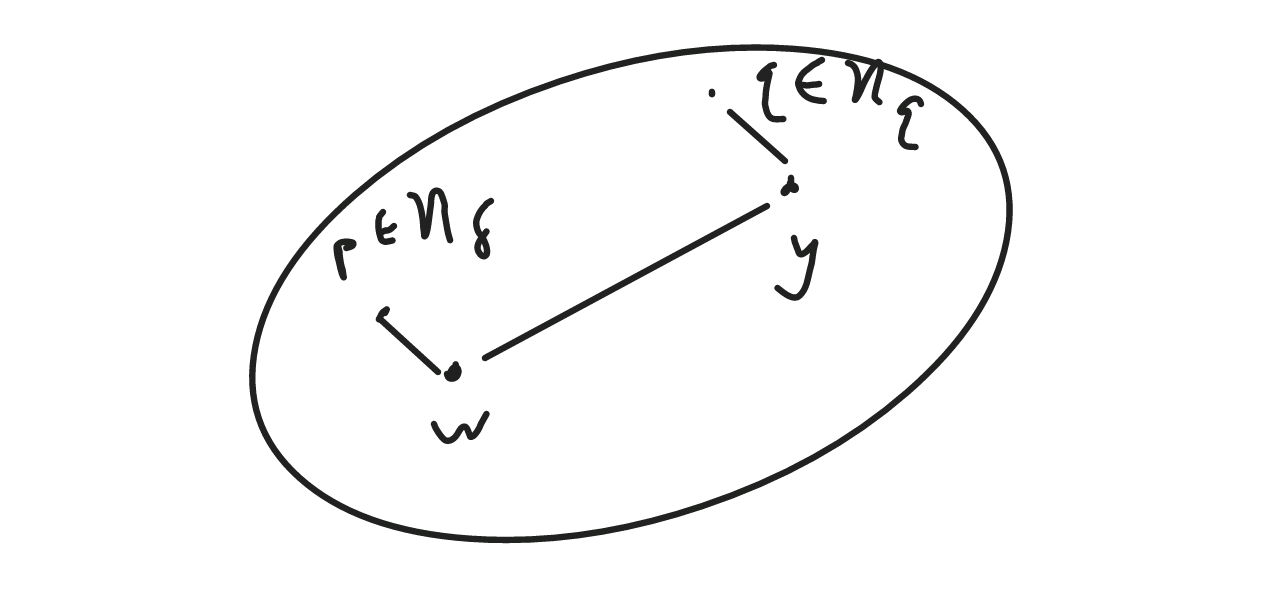 q ∈ N_q
p ∈ N_δ
y
w